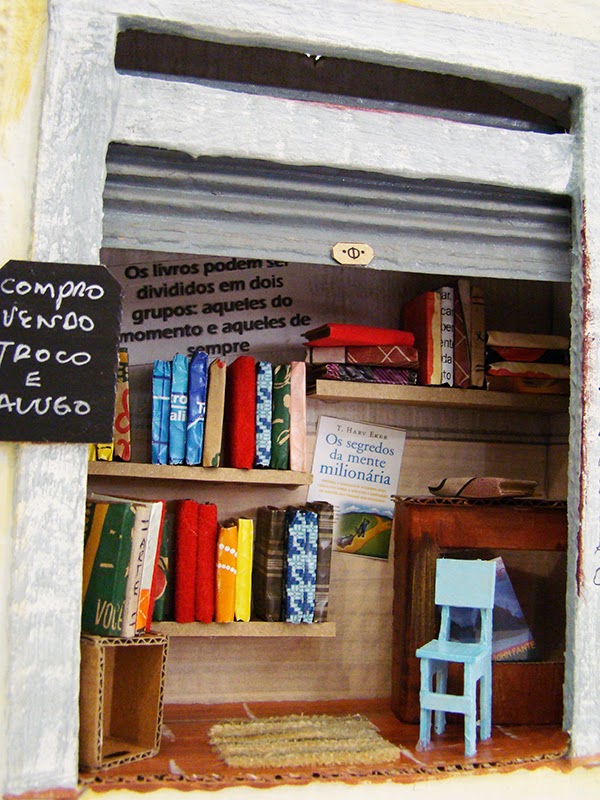 Os livros podem ser
divididos em dois
grupos: aqueles do
momento e aqueles de
sempre
COMPRO
VENDO
TROCO
E
ALUGO
T. HARV EKER
Os segredos
da mente
milionária
JOHN FANTE